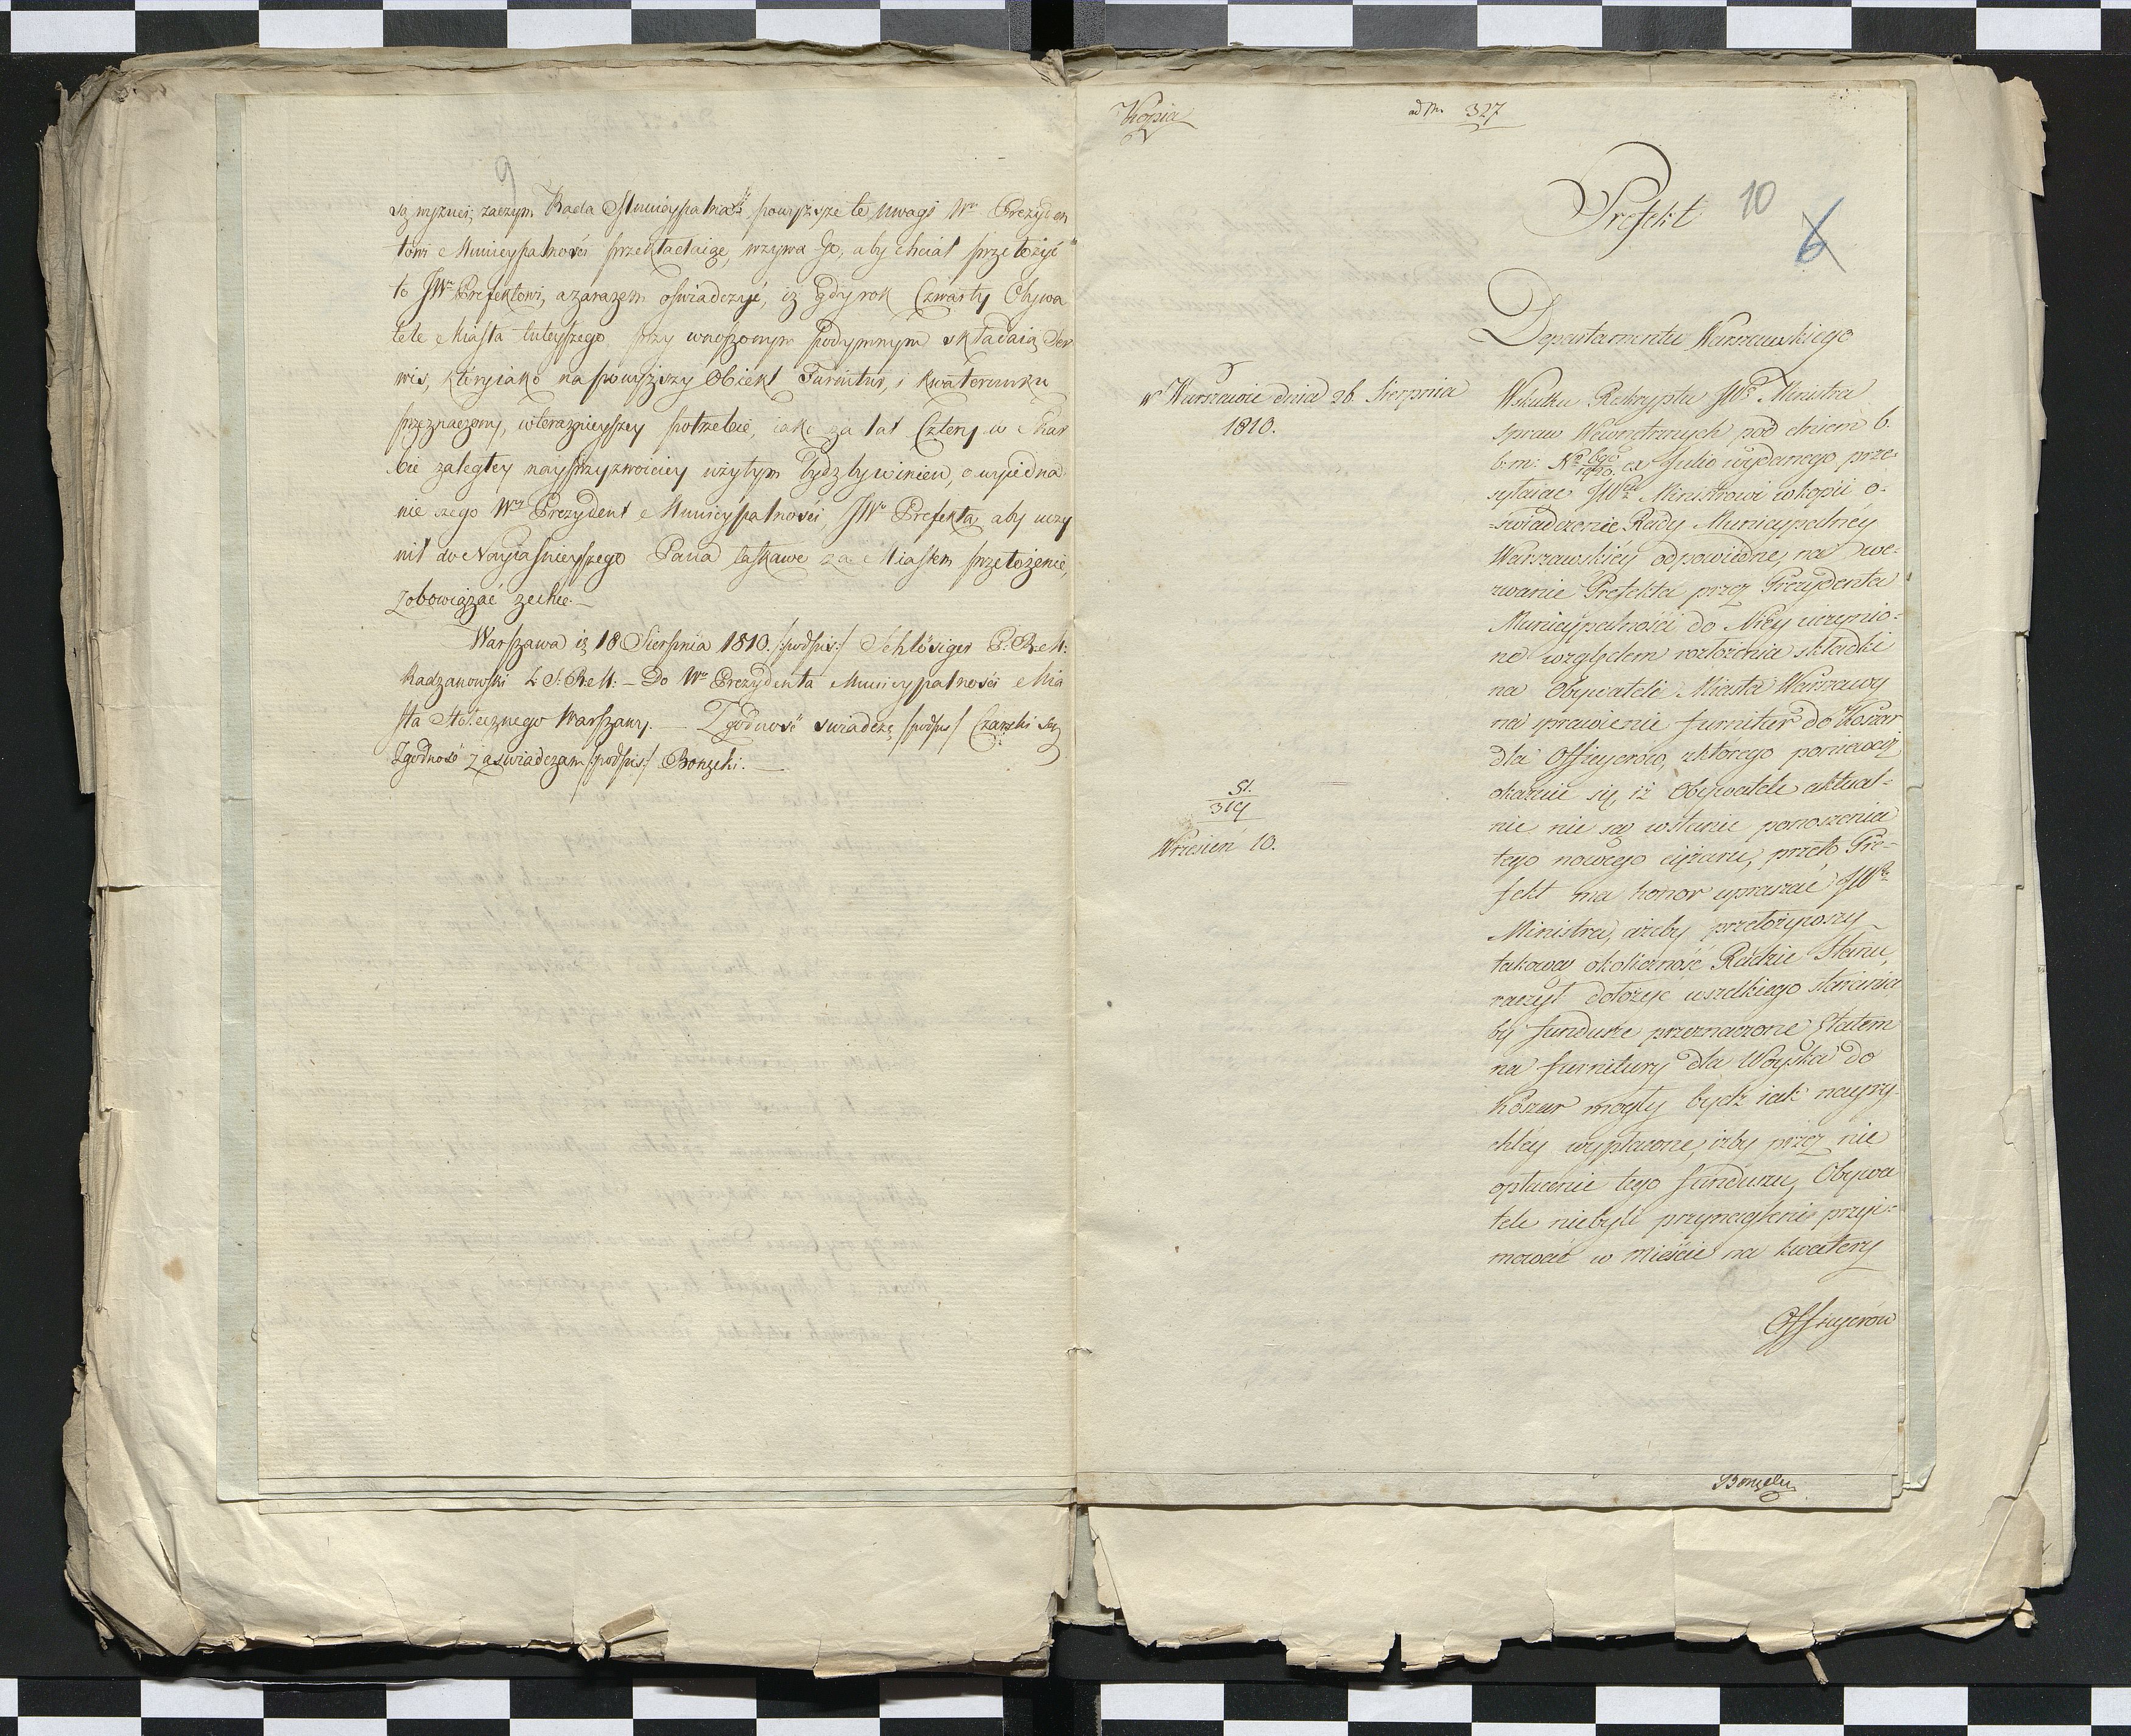 9
są wyznei, zaczym Rada Municypalna powyższe te uwagi Wu Prezyden
towi Municypalności przekładaiąc, wzywa Go, aby chciał przełożyć
to JWu Prefektowi, a zarazem oświadczyć, iż gdy rok Czwarty Obywa
tele Miasta tuteyszego przy wnoszonym Podymnym składaią Ser
wis, który iako na powyższy Obiekt Furnitur, i kwaterunku
przeznaczony, w teraznieyszey potrzebie, iako za lat Cztery w Skar
bie zaległey nayprzyzwoiciey użytym bydz by winien, o wyiedna
nie czego Wny Prezydent Municypalności JWo Prefekta, aby uczy
nił do Nayiaśnieyszego Pana łaskawe za Miastem przełożenie,
zobowiązać zechce. —
Warszawa d. 18 Sierpnia 1810. /:podpis:/ Schlösiger P: R: M:
Radzanowski Z. S: R: M: — Do Wo Prezydenta Municypalności Mia
sta Stołecznego Warszawy. — Zgodność świadczę /podpis/ Czarski Sek
Zgodność zaświadczam /:podpis:/ Bonzelri. —
Kopia
ad Nr. 327
10
Prefekt
6
Departamentu Warszawskiego
w Warszawie dnia 26. Sierpnia
1810.
Wskutku Reskryptu JWo Ministra
Spraw Wewnętrznych pod dniem 6.
b: m: No ex Julio wydanego prze-
syłaiąc JWu Ministrowi w kopii o-
-świadczenie Rady Municypalnéy
Warszawskiéy odpowiedne, na we-
zwanie Prefekta przez Prezydenta
Municypalności do Niéy uczynio-
ne względem rozłożenia składki
na Obywateli Miasta Warszawy
na sprawienie furnitur do Koszar
dla Officyerów, z którego ponieważ
okazuie się, iż Obywatele aktual-
nie nie są w stanie ponoszenia
tego nowego ciężaru, przeto Pre-
fekt ma honor upraszać JWo
Ministra, ażeby przełożywszy
takową okoliczność Radzie Stanu,
raczył dołożyć wszelkiego starania
by fundusze przeznaczone Etatem
na furnitury dla Woyska do
Koszar mogły bydz iak nayry-
chléy wypłacone, iżby przez nie
opłacenie tego funduszu, Obywa
tele niebyli przynagleni przyi-
mować w mieście na kwatery
51.
319
Wrzesień 10.
Officyerów